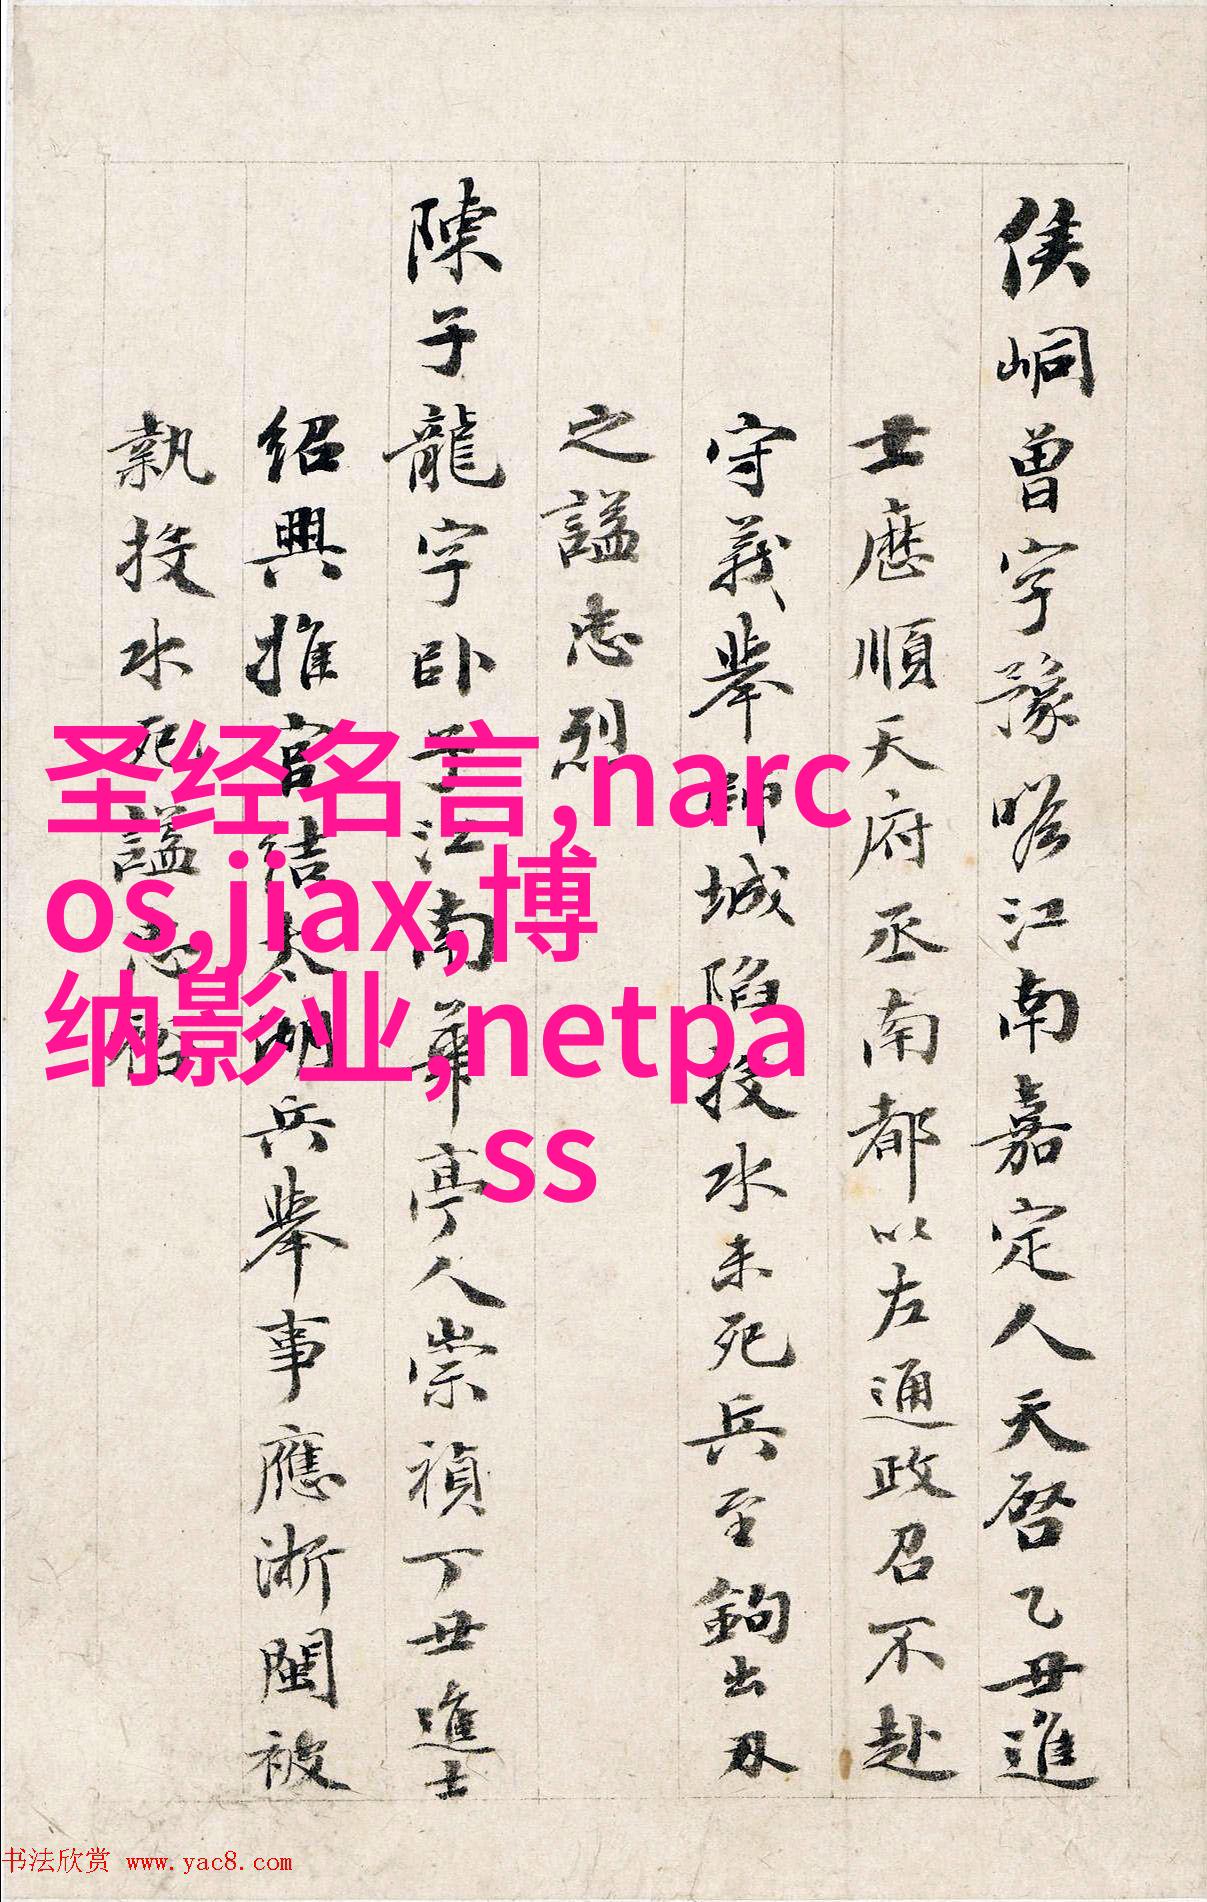 侯峒曾字豫瞻江南嘉定人天啓乙丑進
士歷順天府丞南都以左通政召不赴
守義舉師城陷投水未死兵至鉤出刃
之謚忠烈
陳子龍字臥子江南華亭人崇禎丁丑進士
紹興推官結太湖兵舉事應浙閩被
執投水死謚忠裕
圣经名言,narc
os,jiax,博
纳影业,netpa
ss
书法欣赏 www.yac8.com